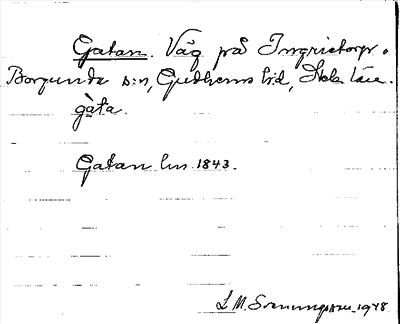 Gatan. Väg på Ingrietorp.
Borgunda s:n, Gudhems hd, Skla län.
gàta.
Gatan lm 1843.
L M. Svenungsson 1978